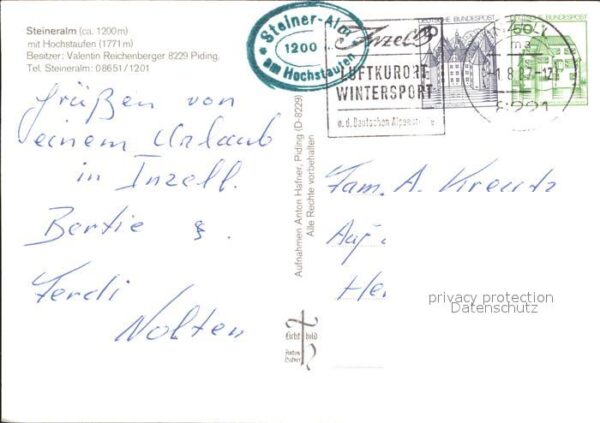 Steineralm (ca. 1200m)
mit Hochstaufen (1771m)
Besitzer: Valentin Reichenberger 8229 Piding,
Tel. Steineralm: 08651/1201
Steiner-Alm
1200
am Hochstaufen
Inzell
LUFTKURORT
WINTERSPORT
a.d. Deutschen Alpenstraße
DEUTSCHE BUNDESPOST
DEUTSCHE BUNDESPOST
50
8221
Grüßen von
einem Urlaub
in Inzell.
Bertie &
Ferdi
Nolten
Aufnahmen Anton Hafner, Piding (D-8229)
Alle Rechte vorbehalten
Licht bild
Anton
Hafner
Fam. A. Kreutz
Auf
He
privacy protection
Datenschutz